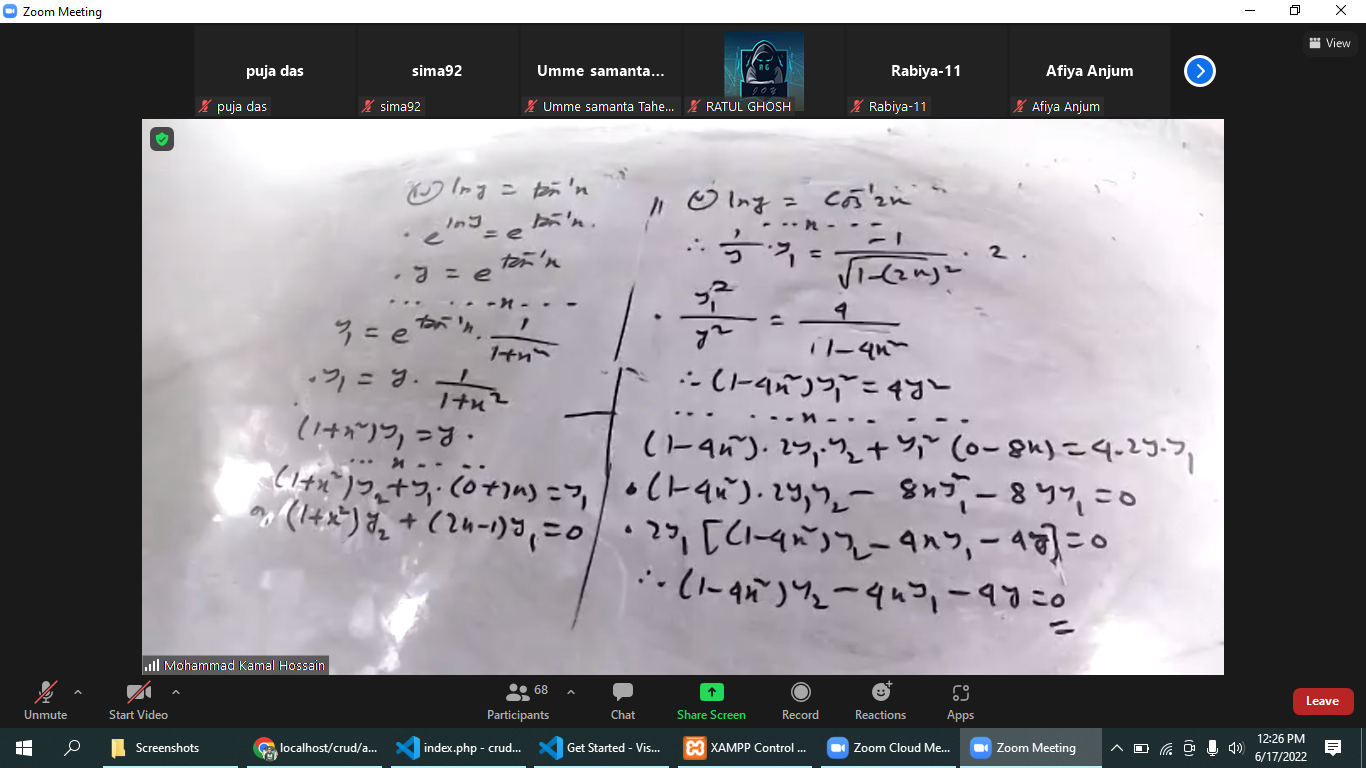 Zoom Meeting
View
puja das
sima92
Umme samanta...
Rabiya-11
Afiya Anjum
puja das
sima92
Umme samanta Tahe...
RG
JOY
RATUL GHOSH
Rabiya-11
Afiya Anjum
ln y = tan⁻¹x
e^(ln y) = e^(tan⁻¹x).
y = e^(tan⁻¹x)
... ...-x-...
y₁ = e^(tan⁻¹x) · 1/(1+x²)
y₁ = y · 1/(1+x²)
(1+x²)y₁ = y.
... x ... ..
(1+x²)y₂ + y₁·(0+2x) = y₁
(1+x²)y₂ + (2x-1)y₁ = 0
(v) ln y = cos⁻¹2x
...x...
∴ 1/y · y₁ = -1/√(1-(2x)²) · 2.
y₁²/y² = 4/(1-4x²)
∴ (1-4x²)y₁² = 4y²
... ...x... ...
(1-4x²)·2y₁·y₂ + y₁²(0-8x) = 4·2y·y₁
(1-4x²)·2y₁y₂ - 8xy₁² - 8yy₁ = 0
2y₁[(1-4x²)y₂ - 4xy₁ - 4y] = 0
∴ (1-4x²)y₂ - 4xy₁ - 4y = 0
Mohammad Kamal Hossain
Unmute
Start Video
68
Participants
Chat
Share Screen
Record
Reactions
Apps
Leave
Screenshots
localhost/crud/a...
index.php - crud...
Get Started - Vis...
XAMPP Control ...
Zoom Cloud Me...
Zoom Meeting
12:26 PM
6/17/2022